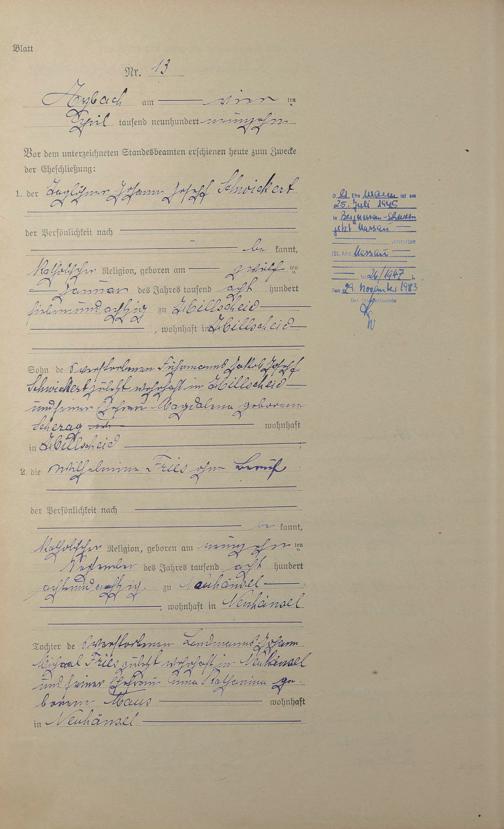 Blatt
Nr. 13
Arzbach am vier ten
April tausend neunhundert
Vor dem unterzeichneten Standesbeamten erschienen heute zum Zwecke
der Eheschließung:
1. der Taglöhner Johann Josef Schwickert
der Persönlichkeit nach
be kannt,
katholischer Religion, geboren am zwölf ten
Januar des Jahres tausend acht hundert
siebenundachtzig zu Hillscheid
, wohnhaft in Hillscheid
Sohn des verstorbenen Jakob Josef
Schwickert zuletzt wohnhaft in Hillscheid
und seiner Ehefrau Magdalena geborenen
wohnhaft
in Hillscheid
2. die Wilhelmine Fries ohne Beruf
der Persönlichkeit nach
be kannt,
katholischer Religion, geboren am ten
September des Jahres tausend acht hundert
achtundachtzig zu Neuhäusel
, wohnhaft in Neuhäusel
Tochter des verstorbenen Landmanns Johann
Fries zuletzt wohnhaft in Neuhäusel
und seiner Ehefrau Anna Katharina ge-
borenen Maus wohnhaft
in Neuhäusel
25. Juli 1945
in
jetzt Nassau
Nassau
26/1947
den 29. November 1983